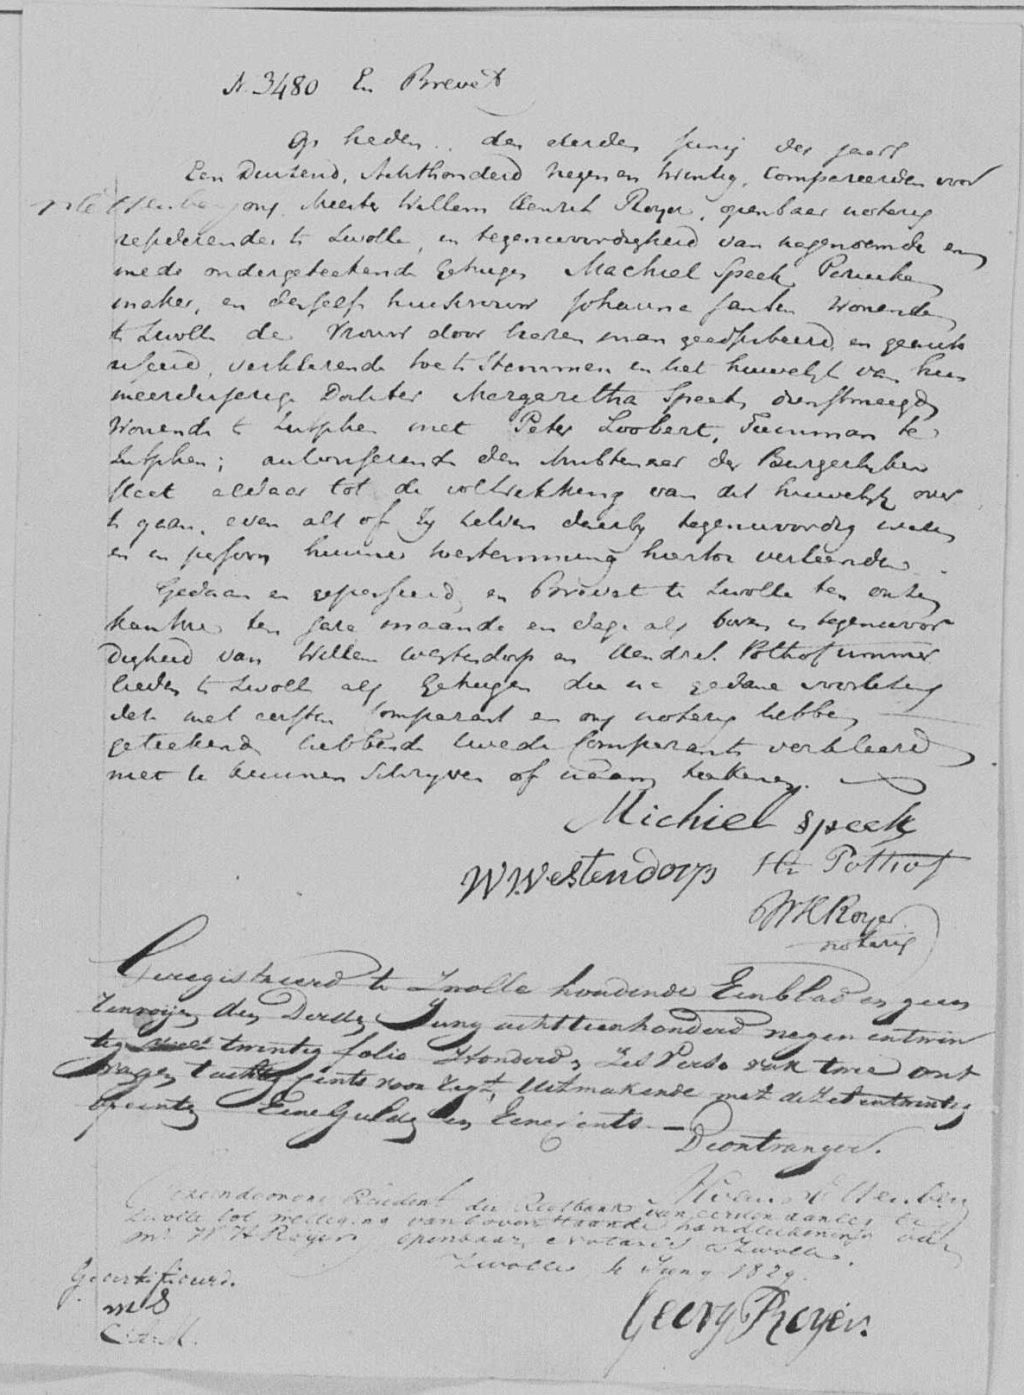 N. 3480 En Brevet
Op heden den derden Junij des jaars
Een Duizend, Achthonderd Negen en twintig, Compareerden voor
ons Meester Willem Henrik Royer, openbaar notaris
residerende te Zwolle, in tegenwoordigheid van nagenoemde en
mede ondergeteekende getuigen Machiel Speek Peruuken
maker, en deszelfs huisvrouw Johanna Jansen Wonende
te Zwolle de Vrouw door haren man geadsisteerd en geauto
riseerd, verklarende toe te Stemmen in het huwelijk van hun
meerderjarige Dochter Margaretha Speek, dienstmaagd
Wonende te Zutphen met Peter Loobert, Tuinman te
Zutphen; autoriserende den Ambtenaar der Burgerlijken
staat aldaar tot de voltrekking van dit huwelijk over
te gaan, even als of zij zelven daarbij tegenwoordig waren
en in persoon hunne toestemming hiertoe verleenden.
Gedaan en gepasseerd en Brevet te Zwolle ten onzen
kantore ten jare maande en dage als boven in tegenwoor
digheid van Willem Westendorp en Hendrik Pothof timmer
lieden te Zwolle als getuigen die na gedane voorlezing
dit met eersten Comparant en ons notaris hebben
geteekend hebbende tweede Comparante verklaard
niet te kunnen Schrijven of naam teekenen.
Michiel Speek
W Westendorp Hk Pothof
WH Royer
notaris
Geregistreerd te Zwolle houdende Een blad en geen
renvoijen den Derden Juny achttienhonderd negen en twin
tig twintig folio Honderd Zes Verso vak twee ont
vangen tachtig cents voor regt, Uitmakende met de Zes en twintig
opcenten Een Gulden en Een cents.
De ontvanger.
President der Regtbank van eersten aanleg te
Zwolle tot wettiging van bovenstaande handteekening van
Mr W H Royer, openbaar Notaris te Zwolle.
Zwolle 4 Juny 1829.
Georg Royer.